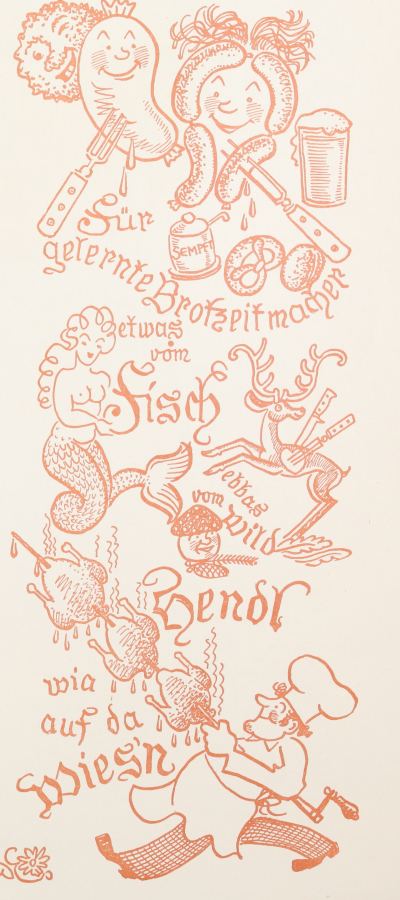 Für
SEMPFT
gelernte Brotzeitmacher
etwas
vom
Fisch
ebbas
vom Wild
Hendl
wia
auf da
Wies'n